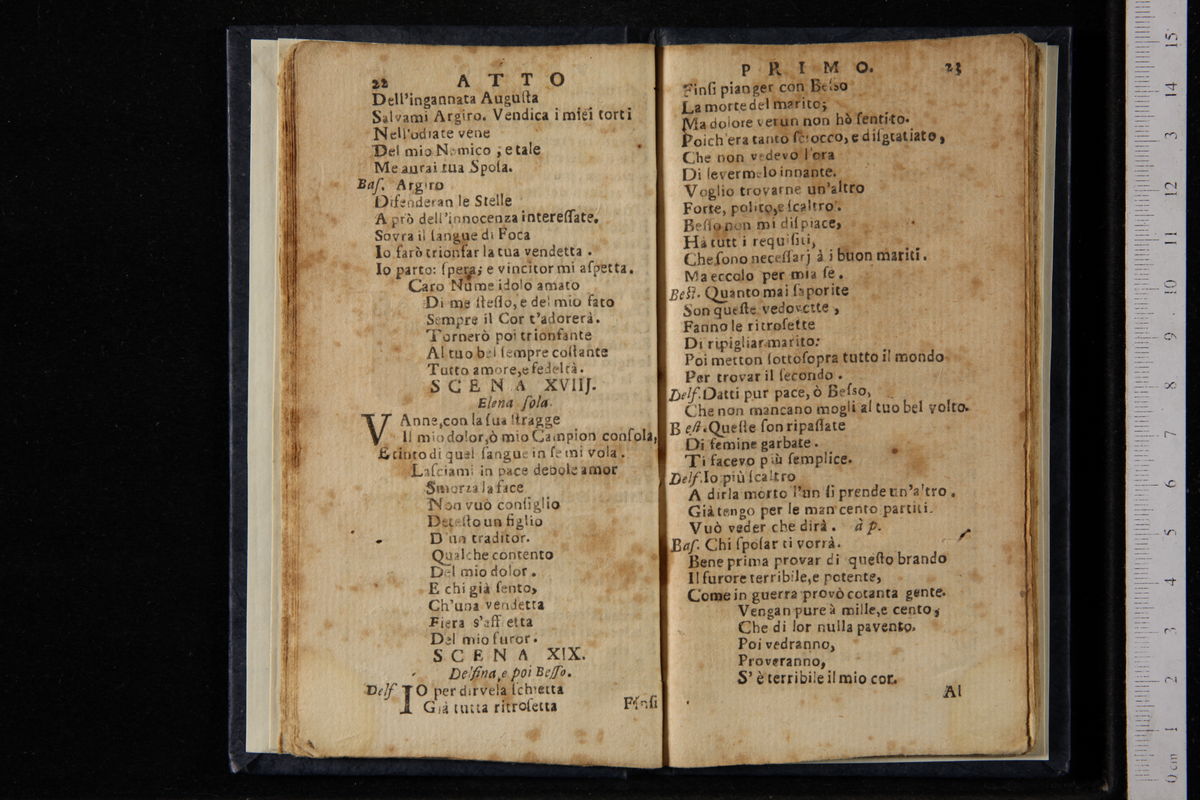 22 ATTO
Dell'ingannata Auguſta
Salvami Argiro. Vendica i miei torti
Nell'odiate vene
Del mio Nemico ; e tale
Me aurai tua Spoſa.
Baſ. Argiro
Difenderan le Stelle
A prò dell'innocenza intereſſate.
Sovra il ſangue di Foca
Io farò trionfar la tua vendetta .
Io parto: ſpera; e vincitor mi aſpetta.
Caro Nume idolo amato
Di me ſteſſo, e del mio fato
Sempre il Cor t'adorerà.
Tornerò poi trionfante
Al tuo bel ſempre coſtante
Tutto amore, e fedeltà.
SCENA XVIIJ.
Elena ſola.
VAnne, con la ſua ſtragge
Il mio dolor, ò mio Campion conſola,
E tinto di quel ſangue in ſe mi vola .
Laſciami in pace debole amor
Smorza la face
Non vuò conſiglio
Deteſto un figlio
D'un traditor.
Qualche contento
Del mio dolor .
E chi già ſento,
Ch'una vendetta
Fiera s'aff etta
Del mio furor.
SCENA XIX.
Delfina, e poi Beſſo.
Delf IO per dirvela ſchietta
Già tutta ritroſetta
Finſi
PRIMO. 23
Finſi pianger con Beſſo
La morte del marito;
Ma dolore verun non hò ſentito.
Poich'era tanto ſciocco, e diſgratiato,
Che non vedevo l'ora
Di levermelo innante.
Voglio trovarne un'altro
Forte, polito, e ſcaltro .
Beſſo non mi diſpiace,
Hà tutt i requiſiti,
Che ſono neceſſarj à i buon mariti.
Ma eccolo per mia fè .
Beſſ. Quanto mai ſaporite
Son queſte vedovette ,
Fanno le ritroſette
Di ripigliar marito:
Poi metton ſottoſopra tutto il mondo
Per trovar il ſecondo .
Delf. Datti pur pace, ò Beſſo,
Che non mancano mogli al tuo bel volto.
Beſſ. Queſte ſon ripaſſate
Di femine garbate .
Ti facevo più ſemplice.
Delf. Io più ſcaltro
A dirla morto l'un ſi prende un'altro .
Già tengo per le man cento partiti.
Vuò veder che dirà . à p.
Baſ. Chi ſpoſar ti vorrà.
Bene prima provar di queſto brando
Il furore terribile, e potente,
Come in guerra provò cotanta gente.
Vengan pure à mille, e cento,
Che di lor nulla pavento.
Poi vedranno,
Proveranno,
S'è terribile il mio cor.
Al
15
14
13
12
11
10
9
8
7
6
5
4
3
2
1
0 cm